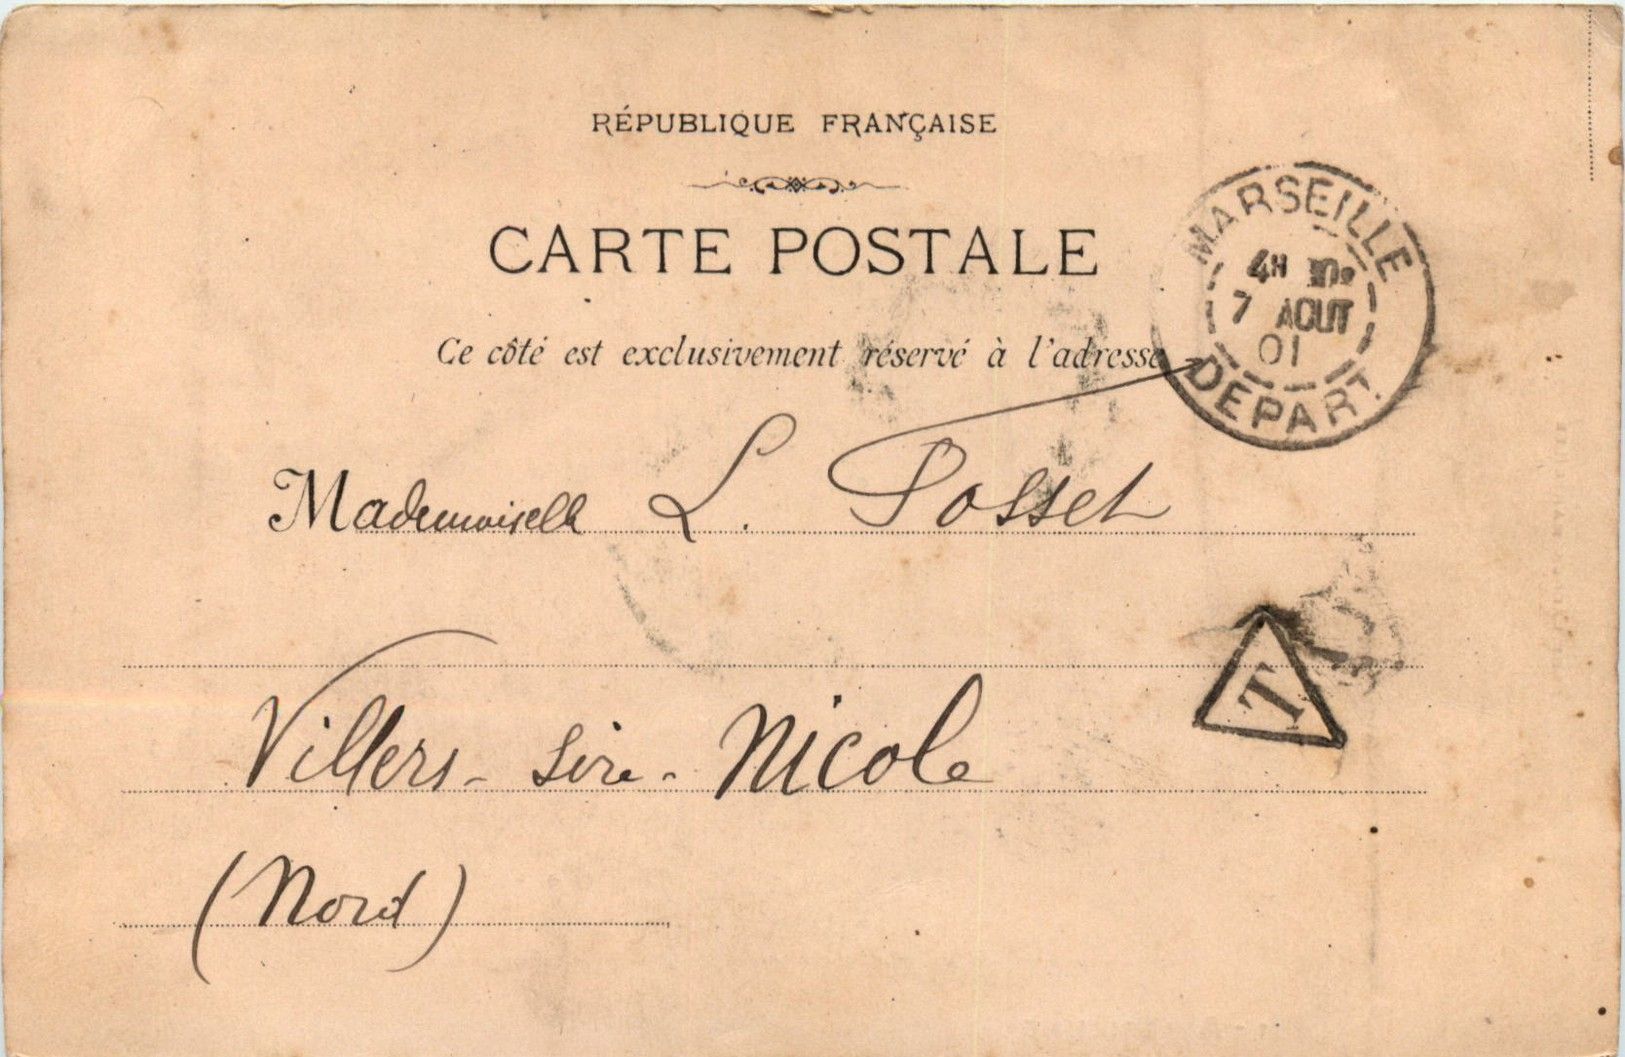 RÉPUBLIQUE FRANÇAISE
CARTE POSTALE
Ce côté est exclusivement réservé à l'adresse
MARSEILLE
4H m.
7 AOUT
01
DEPART.
Mademoiselle L. Posset
T
Villers-Sire-Nicole
(Nord)